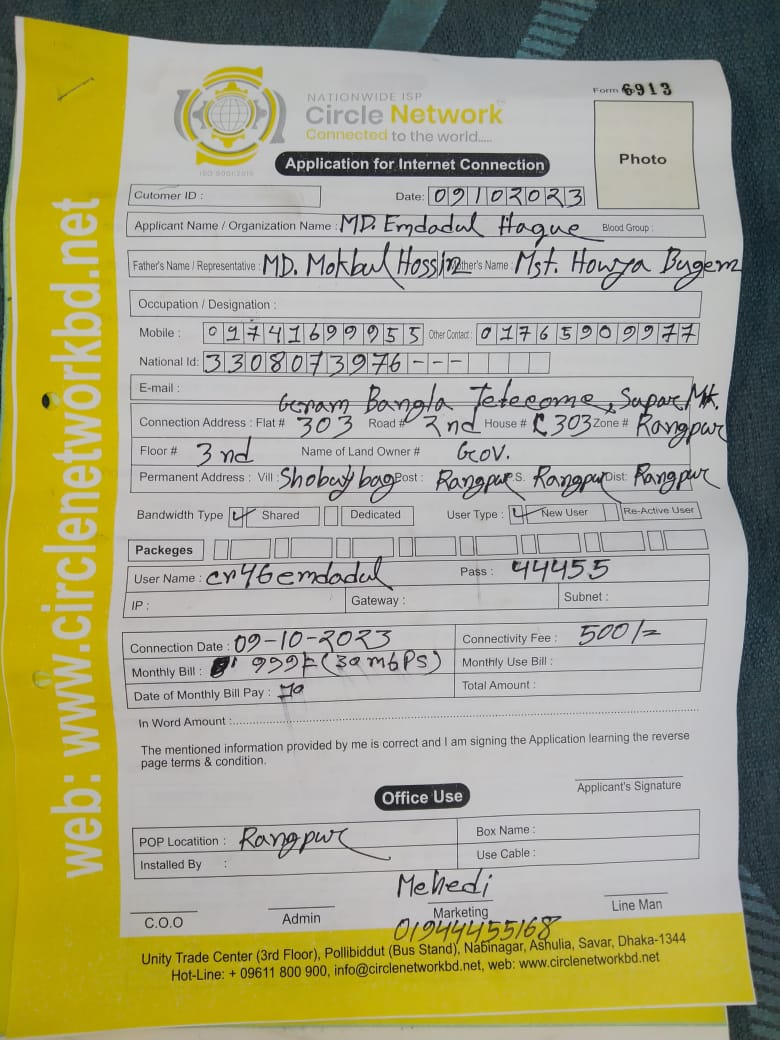 Form 6913
NATIONWIDE ISP
Circle Network
Connected to the world.....
ISO 9001:2015
Application for Internet Connection
Photo
web: www.circlenetworkbd.net
Cutomer ID :
Date: 09102023
Applicant Name / Organization Name : MD. Emdadul Haque Blood Group :
Father's Name / Representative : MD. Mokbul Hossin Mother's Name : Mst. Howya Bugem
Occupation / Designation :
Mobile : 01741699955 Other Contact : 01765909977
National Id: 3308073976---
E-mail :
Bangla Telecome, Supar Mkt.
Connection Address : Flat # 303 Road # 2nd House # 303 Zone # Rangpur
Floor # 3nd Name of Land Owner # Gov.
Permanent Address : Vill : Post : Rangpur P.S. Rangpur Dist: Rangpur
Bandwidth Type Shared Dedicated User Type : New User Re-Active User
Packeges
User Name : cr46emdadul Pass : 44455
IP : Gateway : Subnet :
Connection Date : 09-10-2023 Connectivity Fee : 500/=
Monthly Bill : 999/= (30 mbPS) Monthly Use Bill :
Date of Monthly Bill Pay : Total Amount :
In Word Amount :
The mentioned information provided by me is correct and I am signing the Application learning the reverse
page terms & condition.
Applicant's Signature
Office Use
POP Locatition : Rangpur Box Name :
Installed By : Use Cable :
Mehedi
C.O.O Admin Marketing Line Man
01944455168
Unity Trade Center (3rd Floor), Pollibiddut (Bus Stand), Nabinagar, Ashulia, Savar, Dhaka-1344
Hot-Line: + 09611 800 900, info@circlenetworkbd.net, web: www.circlenetworkbd.net